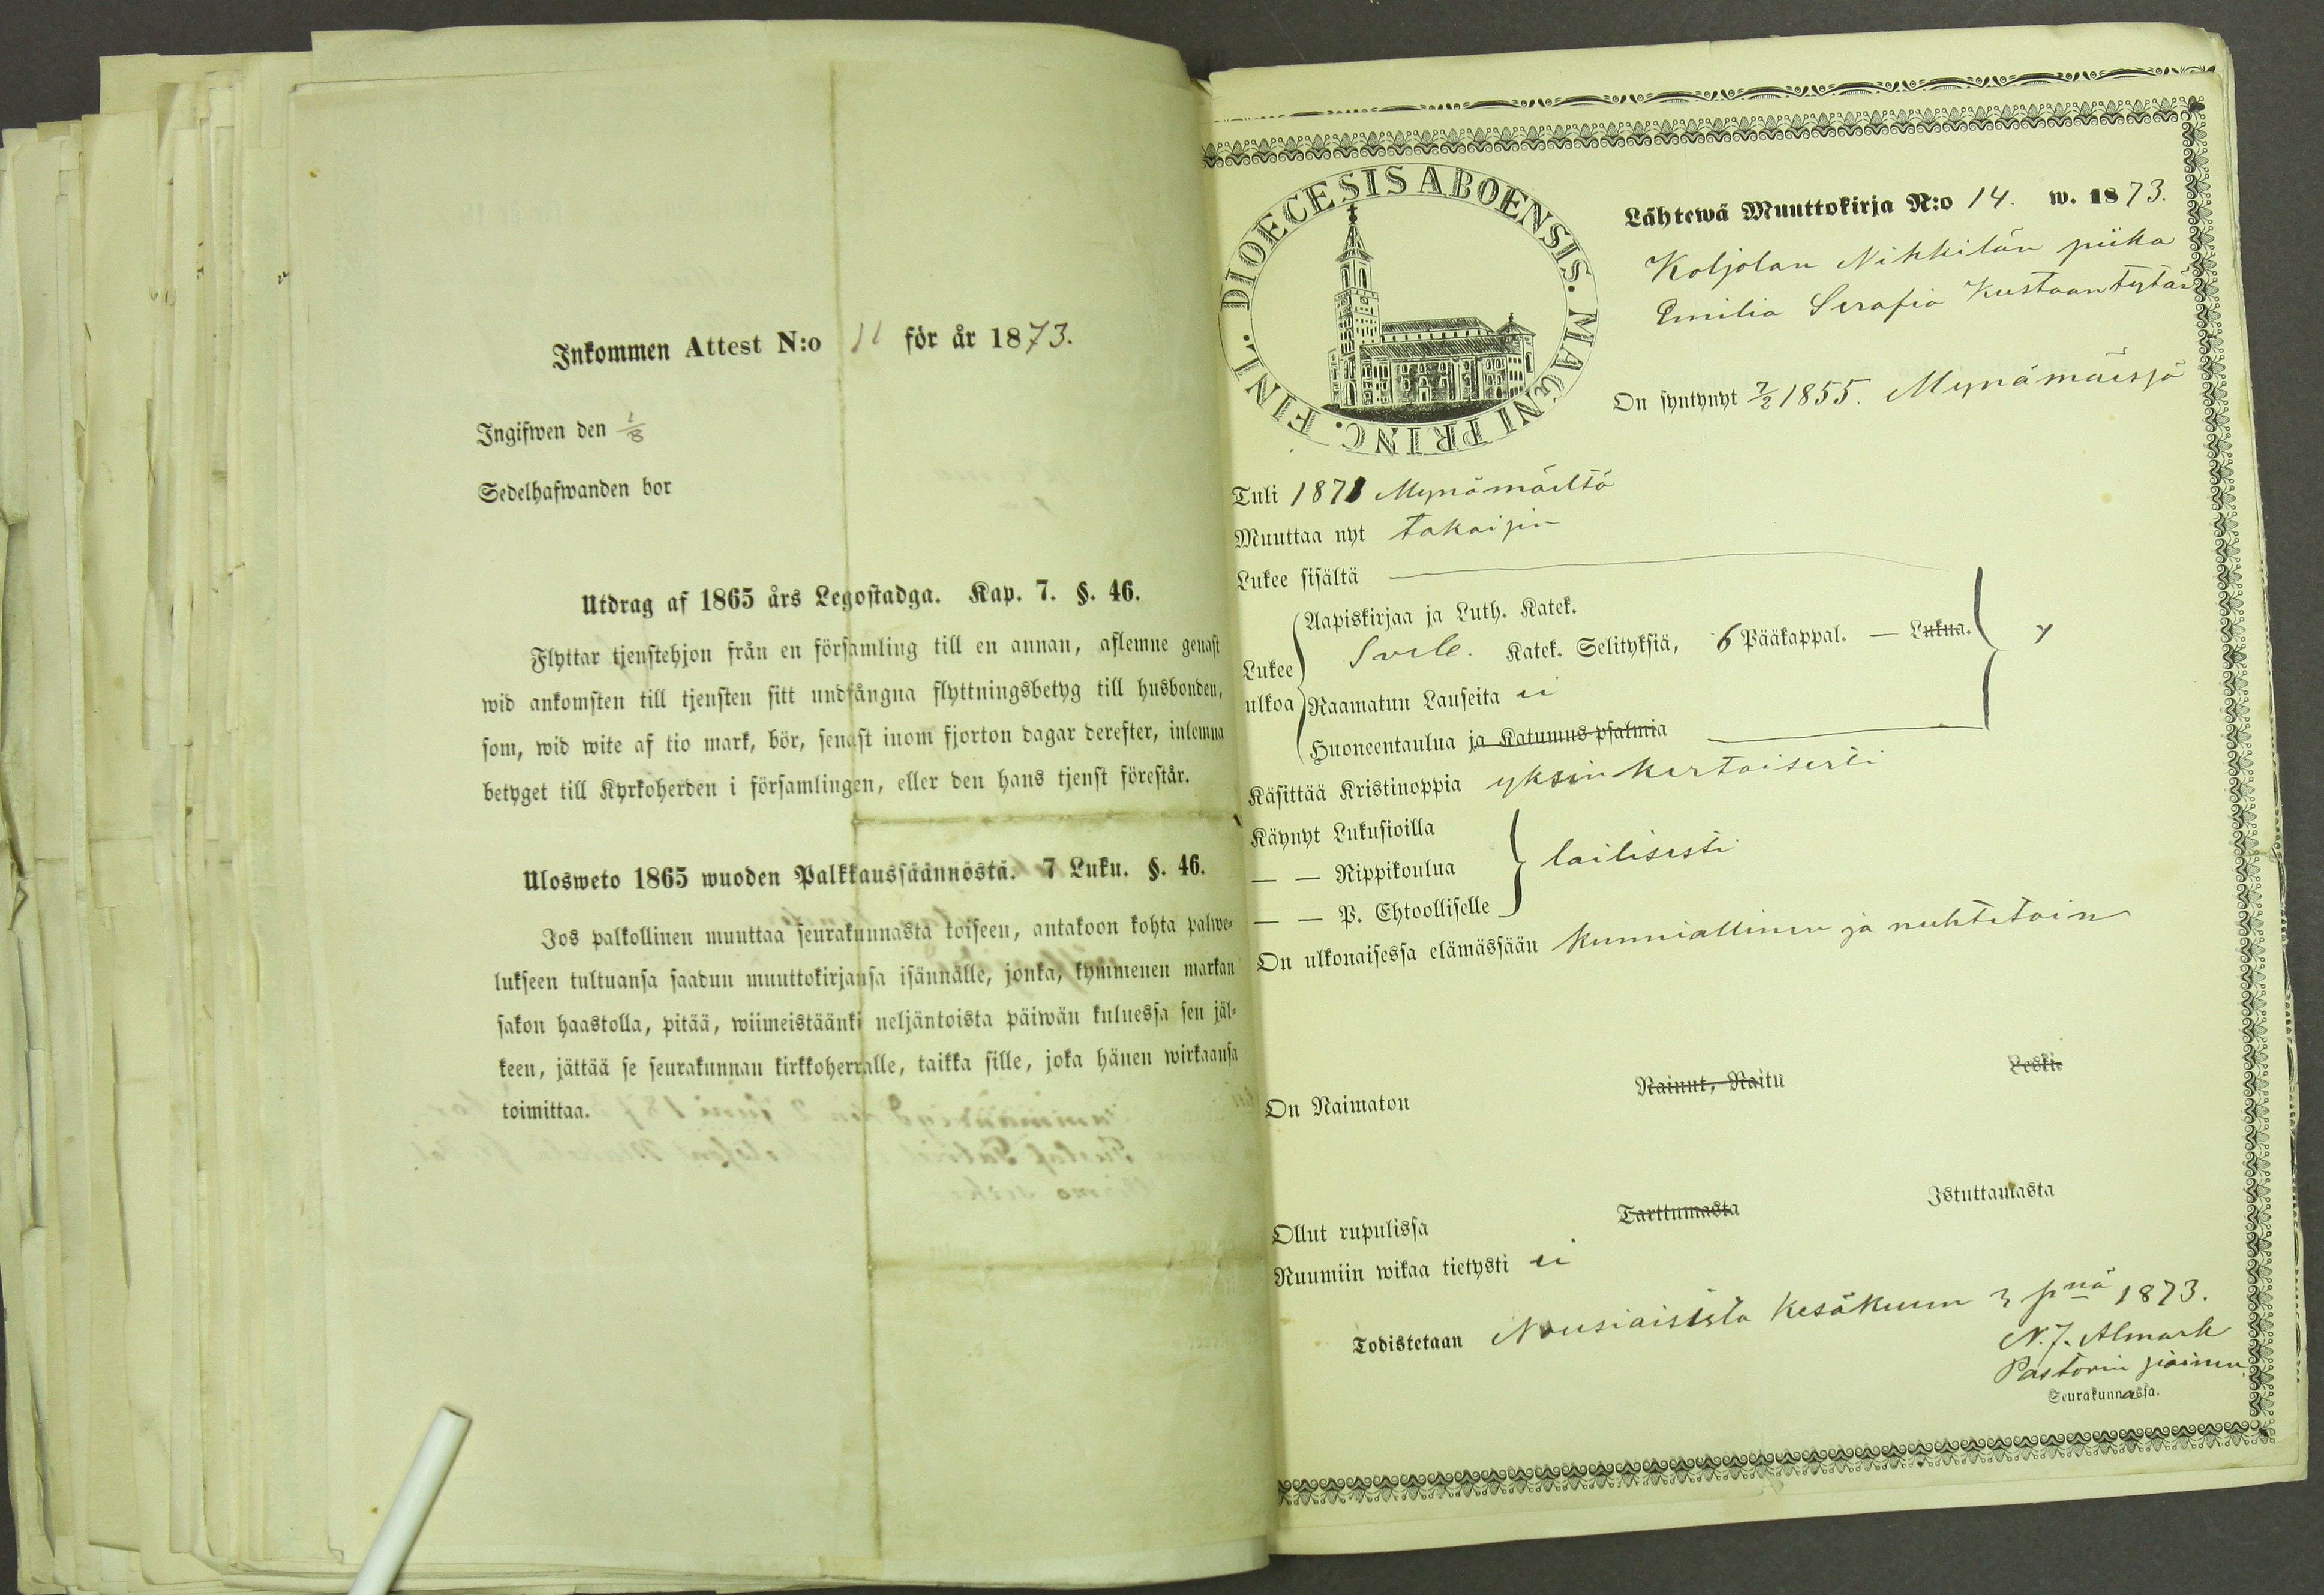 Inkommen Attest N:o 11 för år 1873.
Ingifwen den 1/8
Sedelhafwanden bor
Utdrag af 1865 års Legostadga. Kap. 7. §. 46.
Flyttar tjenstehjon från en församling till en annan, aflemne genast
wid ankomsten till tjensten sitt undfångna flyttningsbetyg till husbonden,
som, wid wite af tio mark, bör, senast inom fjorton dagar derefter, inlemna
betyget till Kyrkoherden i församlingen, eller den hans tjenst förestår.
Ulosweto 1865 wuoden Palkkaussäännöstä. 7 Luku. §. 46.
Jos palkollinen muuttaa seurakunnasta toiseen, antakoon kohta palwe-
lukseen tultuansa saadun muuttokirjansa isännälle, jonka, kymmenen markan
sakon haastolla, pitää, wiimeistäänki neljäntoista päiwän kuluessa sen jäl-
keen, jättää se seurakunnan kirkkoherralle, taikka sille, joka hänen wirkaansa
toimittaa.
DIOECESIS ABOENSIS. MAGNI PRINC. FINL.
Lähtewä Muuttokirja N:o 14. w. 1873.
Koljolan Nikkilän piika
Emilia Serafia Kustaantytär
On syntynyt 7/2 1855. Mynämäessä
Tuli 1871 Mynämäeltä
Muuttaa nyt takaisin
Lukee sisältä
Lukee ulkoa
Aapiskirjaa ja Luth. Katek.
Katek. Selityksiä, 6 Pääkappal. — Lukua.
Raamatun Lauseita ei
Huoneentaulua ja Katumus psalmia
Käsittää Kristinoppia yksinkertaisesti
Käynyt Lukusioilla
— — Rippikoulua
— — P. Ehtoolliselle
lailisesti
On ulkonaisessa elämässään kunniallinen ja nuhtetoin
On Naimaton Nainut, Naitu Leski.
Ollut rupulissa Tarttumasta Istuttamasta
Ruumiin wikaa tietysti ei
Todistetaan Nousiaisista Kesäkuun 3 pnä 1873.
N. J. Almark
Pastorin siainen
Seurakunnassa.